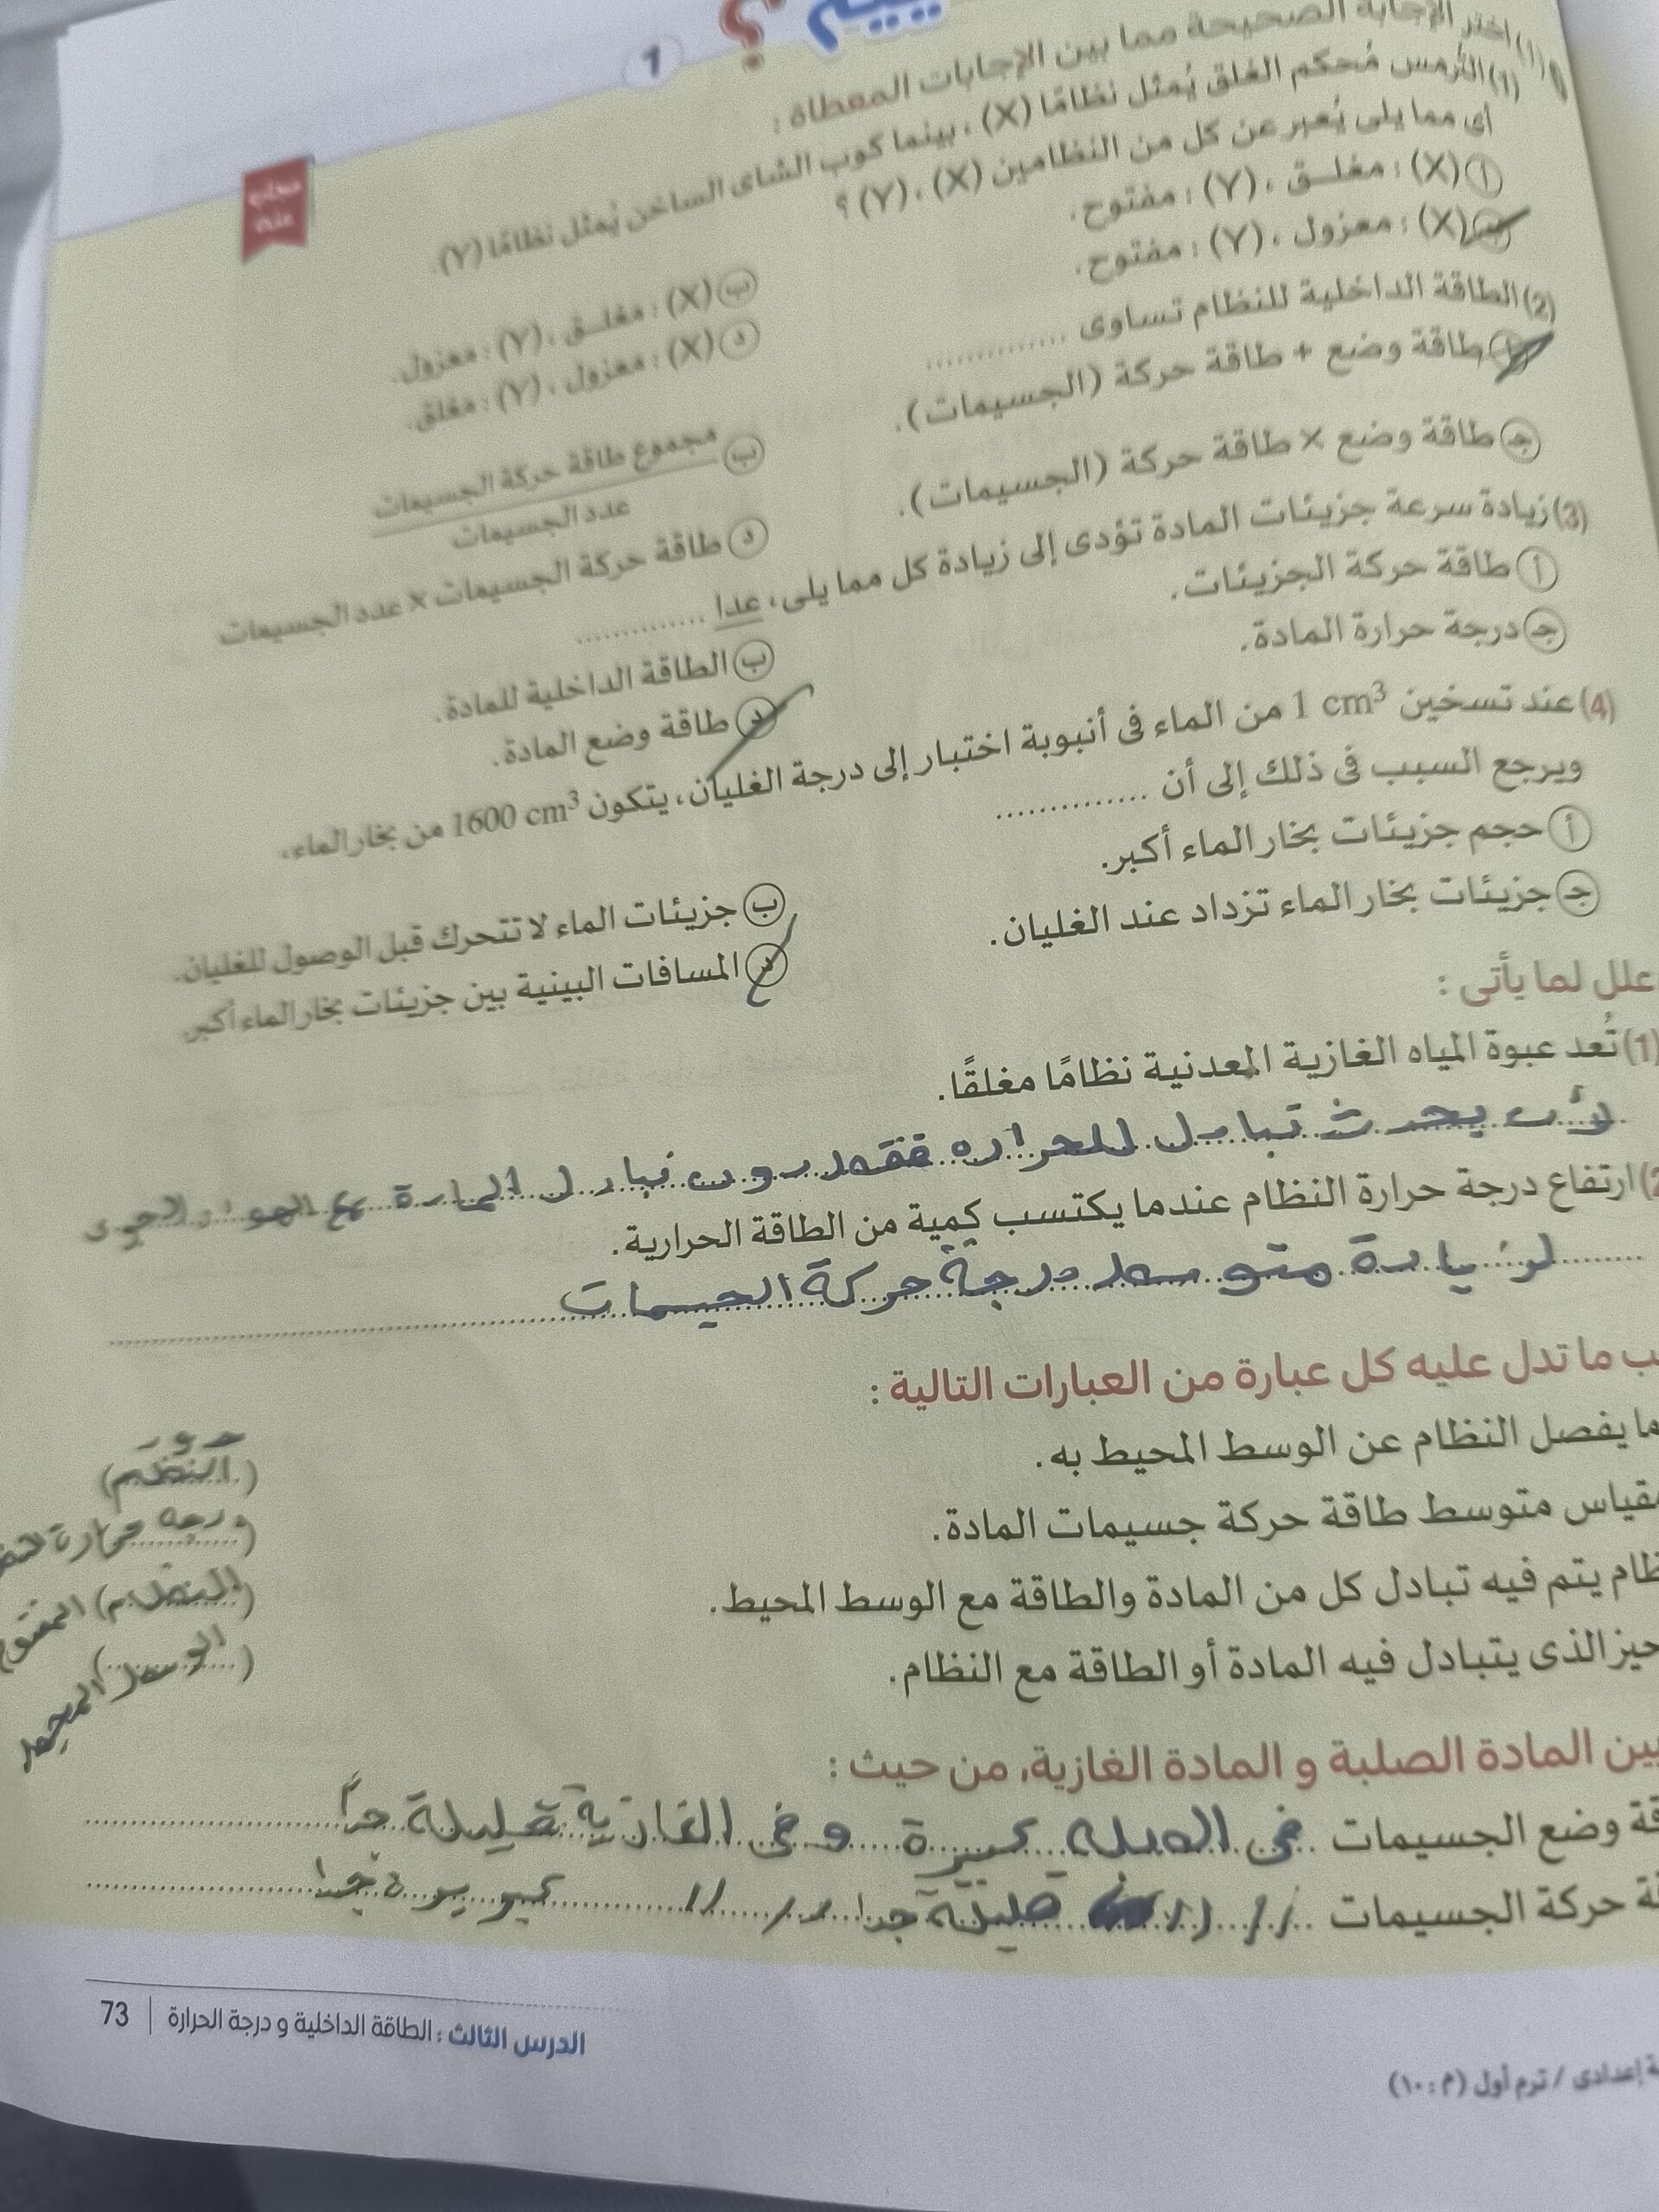 1
؟
(1) اختر الإجابة الصحيحة مما بين الإجابات المعطاة :
(1) الترمس مُحكم الغلق يُمثل نظامًا (X)، بينما كوب الشاى الساخن يُمثل نظامًا (Y).
أى مما يلى يُعبر عن كل من النظامين (X)، (Y) ؟
أ (X) : مغلـق ، (Y) : مفتوح.
ب (X) : مغلـق ، (Y) : معزول.
(X) : معزول ، (Y) : مفتوح.
د (X) : معزول ، (Y) : مغلق.
مجاب عنه
(2) الطاقة الداخلية للنظام تساوى ..............
أ طاقة وضع + طاقة حركة (الجسيمات).
ب مجموع طاقة حركة الجسيمات
عدد الجسيمات
ج طاقة وضع × طاقة حركة (الجسيمات).
د طاقة حركة الجسيمات × عدد الجسيمات
(3) زيادة سرعة جزيئات المادة تؤدى إلى زيادة كل مما يلى، عدا ..............
أ طاقة حركة الجزيئات.
ب الطاقة الداخلية للمادة.
ج درجة حرارة المادة.
د طاقة وضع المادة.
(4) عند تسخين 1 cm³ من الماء فى أنبوبة اختبار إلى درجة الغليان، يتكون 1600 cm³ من بخار الماء،
ويرجع السبب فى ذلك إلى أن ..............
أ حجم جزيئات بخار الماء أكبر.
ب جزيئات الماء لا تتحرك قبل الوصول للغليان.
ج جزيئات بخار الماء تزداد عند الغليان.
د المسافات البينية بين جزيئات بخار الماء أكبر
علل لما يأتى :
(1) تُعد عبوة المياه الغازية المعدنية نظامًا مغلقًا.
لأن يحدث تبادل للحراره فقط دون تبادل المادة مع الهواء الجوى
(2) ارتفاع درجة حرارة النظام عندما يكتسب كمية من الطاقة الحرارية.
لزيادة متوسط درجة حركة الجسيمات
ب ما تدل عليه كل عبارة من العبارات التالية :
ما يفصل النظام عن الوسط المحيط به. (حدود النظام)
مقياس متوسط طاقة حركة جسيمات المادة. (درجة حرارة
ظام يتم فيه تبادل كل من المادة والطاقة مع الوسط المحيط. (النظام) المفتوح
حيز الذى يتبادل فيه المادة أو الطاقة مع النظام. (الوسط المحيط
بين المادة الصلبة و المادة الغازية، من حيث :
قة وضع الجسيمات فى الصلبه كبيرة و فى الغازية قليلة جداً
قة حركة الجسيمات // // قليلة جدا // // كبيرة جدا
الدرس الثالث : الطاقة الداخلية و درجة الحرارة | 73
ة إعدادى / ترم أول (م : ١٠)